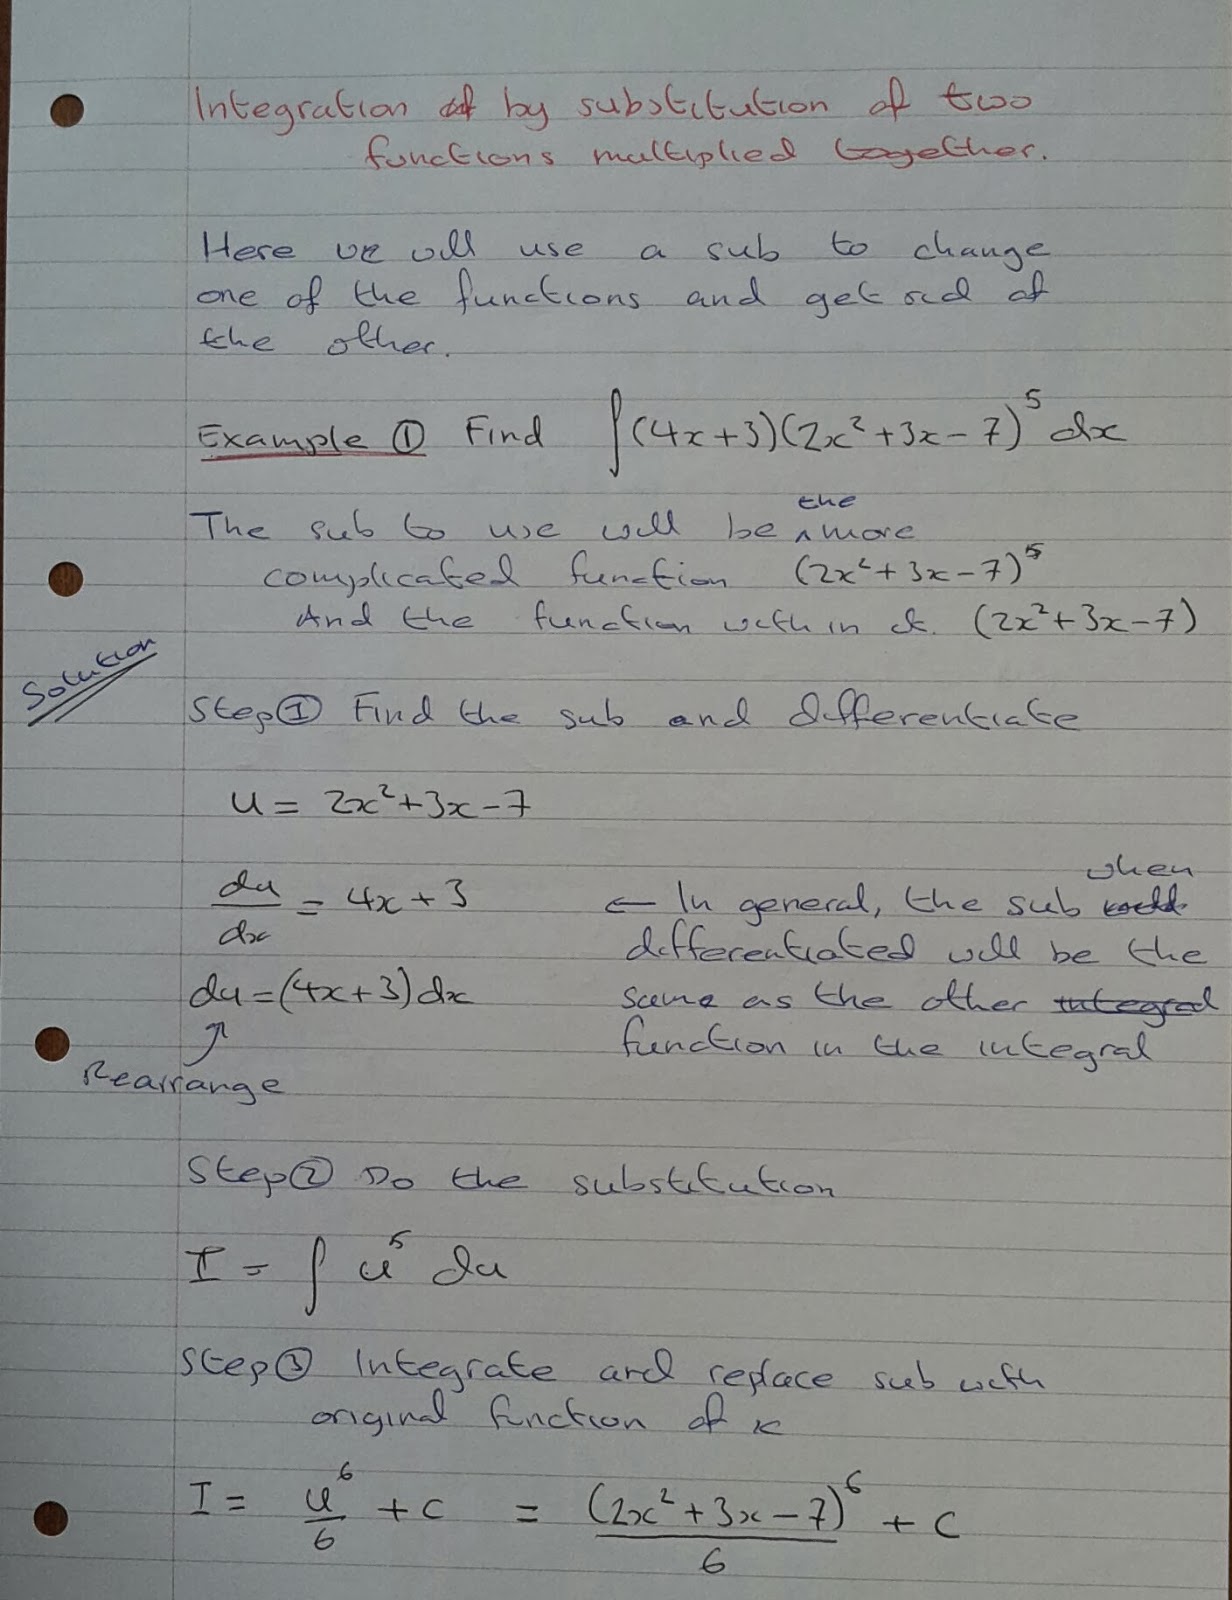 Integration of by substitution of two
functions multiplied together.
Here we will use a sub to change
one of the functions and get rid of
the other.
Example ① Find ∫(4x+3)(2x²+3x-7)⁵ dx
The sub to use will be the more
complicated function (2x²+3x-7)⁵
And the function within it. (2x²+3x-7)
Solution
Step ① Find the sub and differentiate
u = 2x²+3x-7
du/dx = 4x+3 ← In general, the sub when
differentiated will be the
du=(4x+3)dx same as the other integral
function in the integral
Rearrange
Step ② Do the substitution
I = ∫ u⁵ du
Step ③ Integrate and replace sub with
original function of x
I = u⁶/6 + c = (2x²+3x-7)⁶/6 + c